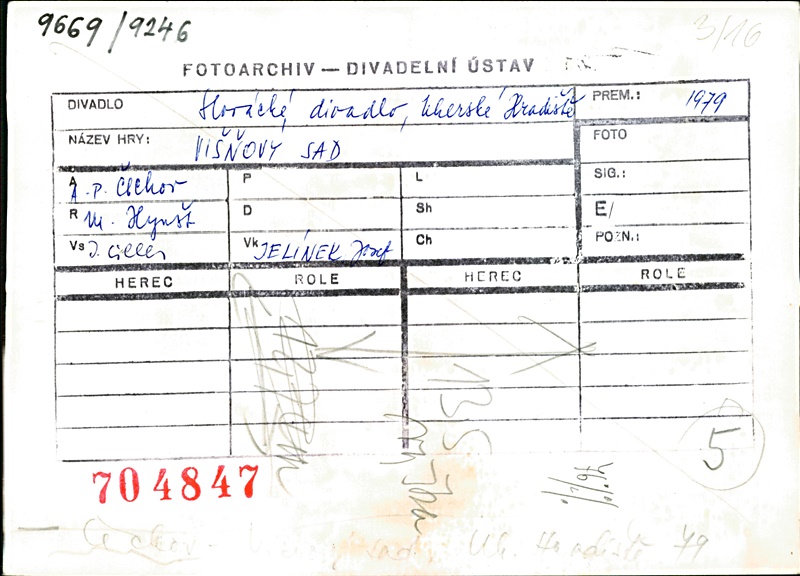 9669/9246
3/16
FOTOARCHIV — DIVADELNÍ ÚSTAV
DIVADLO Slovácké divadlo, Uherské Hradiště PREM.: 1979
NÁZEV HRY: VIŠŇOVY SAD FOTO
A A. P. Čechov P L SIG.:
R M. Hynšt D Sh E/
Vs J. Ciller Vk JELÍNEK Josef Ch POZN.:
HEREC ROLE HEREC ROLE
13 S
5
704847
Čechov - sad, Uh. Hradiště 79